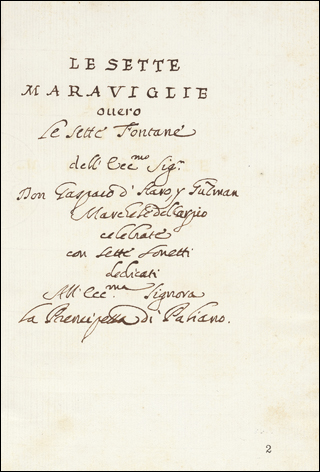 LE SETTE
MARAVIGLIE
ouero
Le Sette Fontane
dell'Ecc.mo Sig.r
Don Gasparo d'Haro, y Guzman
Marchese del Carpio
celebrate
con sette Sonetti
dedicati
All'Ecc.ma Signora
la Prencipessa di Paliano.
2